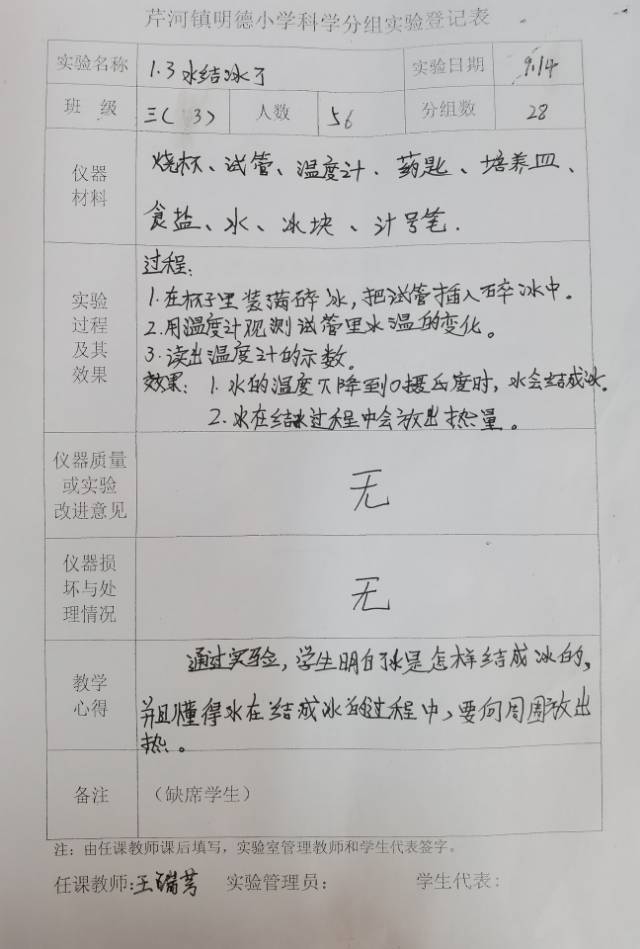 芹河镇明德小学科学分组实验登记表
实验名称 1.3 水结冰了 实验日期 9.14
班 级 三(3) 人数 56 分组数 28
仪器
材料
烧杯、试管、温度计、药匙、培养皿、
食盐、水、冰块、计号笔.
实验
过程
及其
效果
过程:
1.在杯子里装满碎冰,把试管插入碎冰中。
2.用温度计观测试管里水温的变化。
3.读出温度计的示数。
效果: 1.水的温度下降到0摄氏度时,水会结成冰。
2.水在结冰过程中会放出热量。
仪器质量
或实验
改进意见
无
仪器损
坏与处
理情况
无
教学
心得
通过实验,学生明白了水是怎样结成冰的,
并且懂得水在结成冰的过程中,要向周围放出
热。
备注 (缺席学生)
注:由任课教师课后填写,实验室管理教师和学生代表签字。
任课教师:王瑞芳 实验管理员: 学生代表: